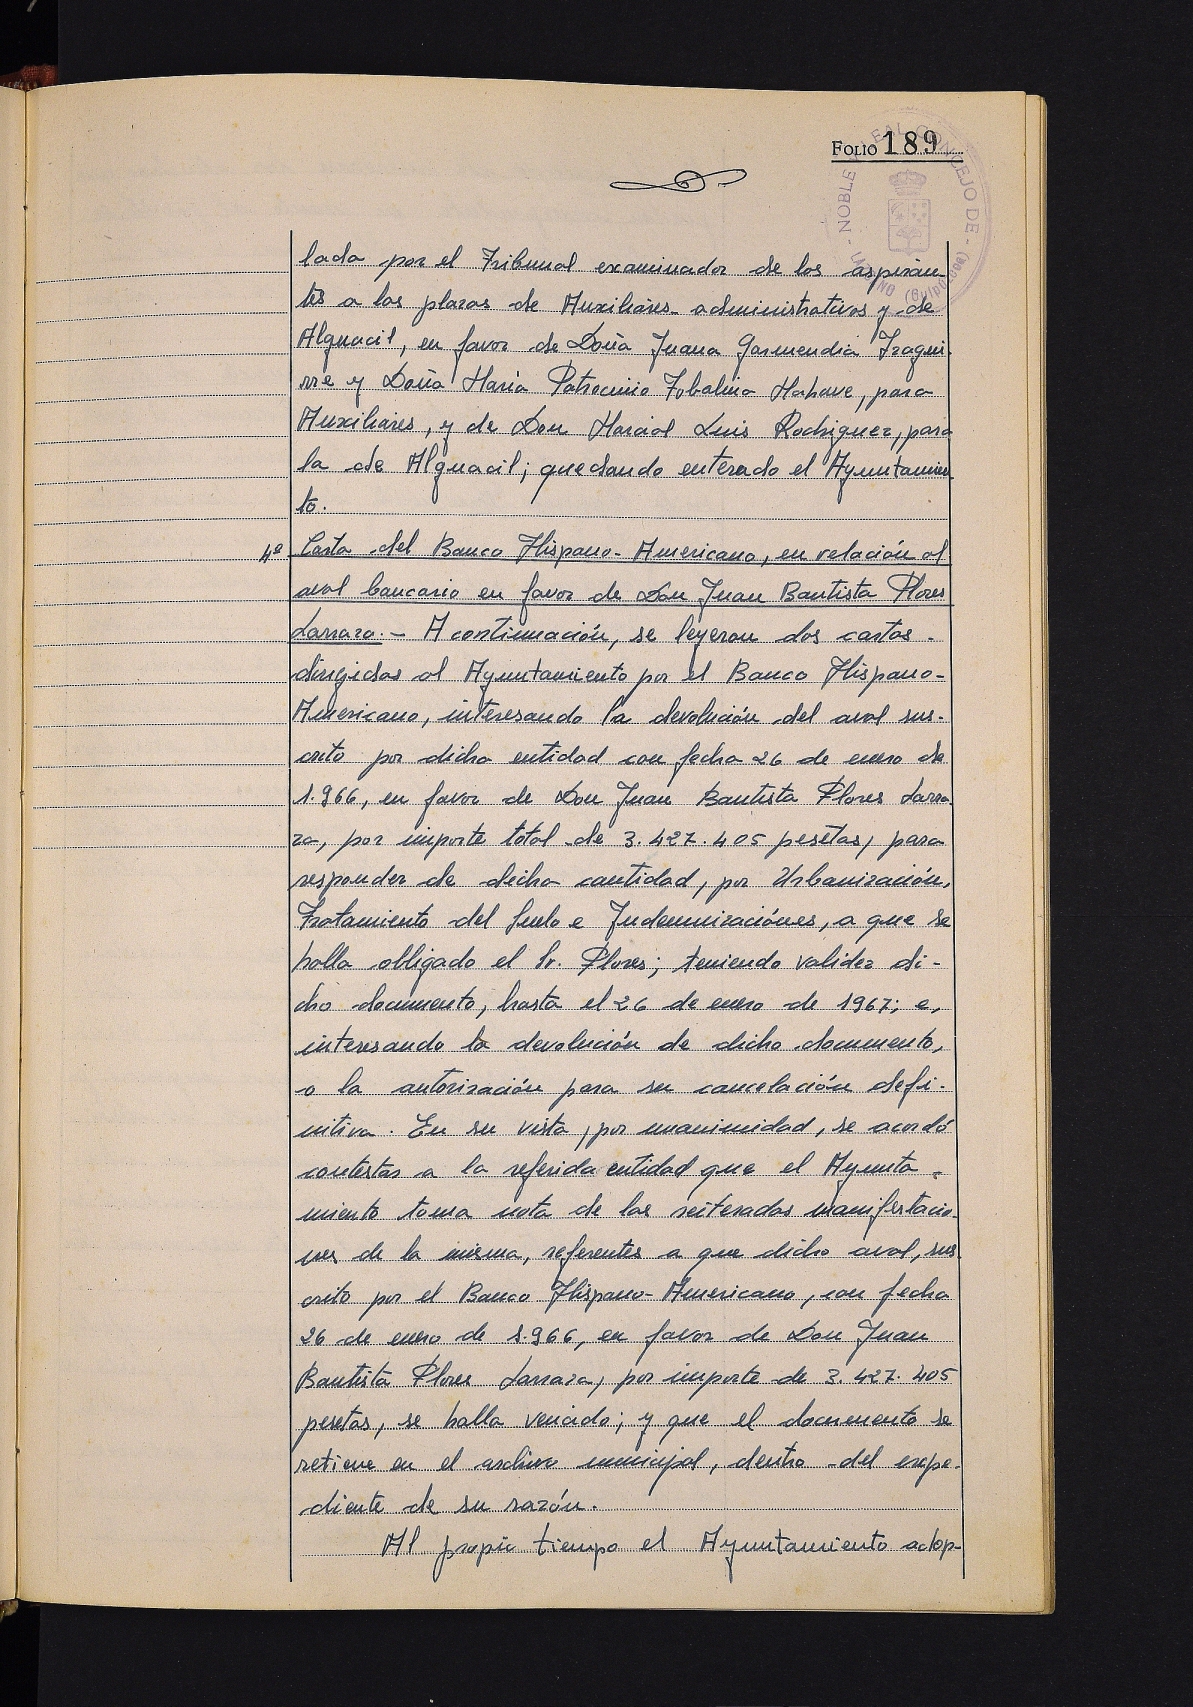 FOLIO 189
NOBLE Y LEAL CONCEJO DE (GUIPÚZCOA)
lada por el Tribunal examinador de los aspiran-
tes a las plazas de Auxiliares administrativos y de
Alguacil, en favor de Doña Juana Garmendia Izagui-
rre y Doña María Patrocinio Tobalina, para
Auxiliares, y de Don Marcial Luis Rodriguez, para
la de Alguacil; quedando enterado el Ayuntamien-
to.
4º Carta del Banco Hispano-Americano, en relación al
aval bancario en favor de Don Juan Bautista Flores
Larraza.- A continuación, se leyeron dos cartas
dirigidas al Ayuntamiento por el Banco Hispano-
Americano, interesando la devolución del aval sus-
crito por dicha entidad con fecha 26 de enero de
1.966, en favor de Don Juan Bautista Flores Larra-
za, por importe total de 3.427.405 pesetas, para
responder de dicha cantidad, por Urbanización,
Tratamiento del Suelo e Indemnizaciónes, a que se
halla obligado el Sr. Flores; teniendo validez di-
cho documento, hasta el 26 de enero de 1967; e,
interesando la devolución de dicho documento,
o la autorización para su cancelación defi-
nitiva. En su vista, por unanimidad, se acordó
contestar a la referida entidad que el Ayunta-
miento toma nota de las reiteradas manifestacio-
nes de la misma, referentes a que dicho aval, sus-
crito por el Banco Hispano-Americano, con fecha
26 de enero de 1.966, en favor de Don Juan
Bautista Flores Larraza, por importe de 3.427.405
pesetas, se halla vencido; y que el documento se
retiene en el archivo municipal, dentro del expe-
diente de su razón.
Al propio tiempo el Ayuntamiento adop-